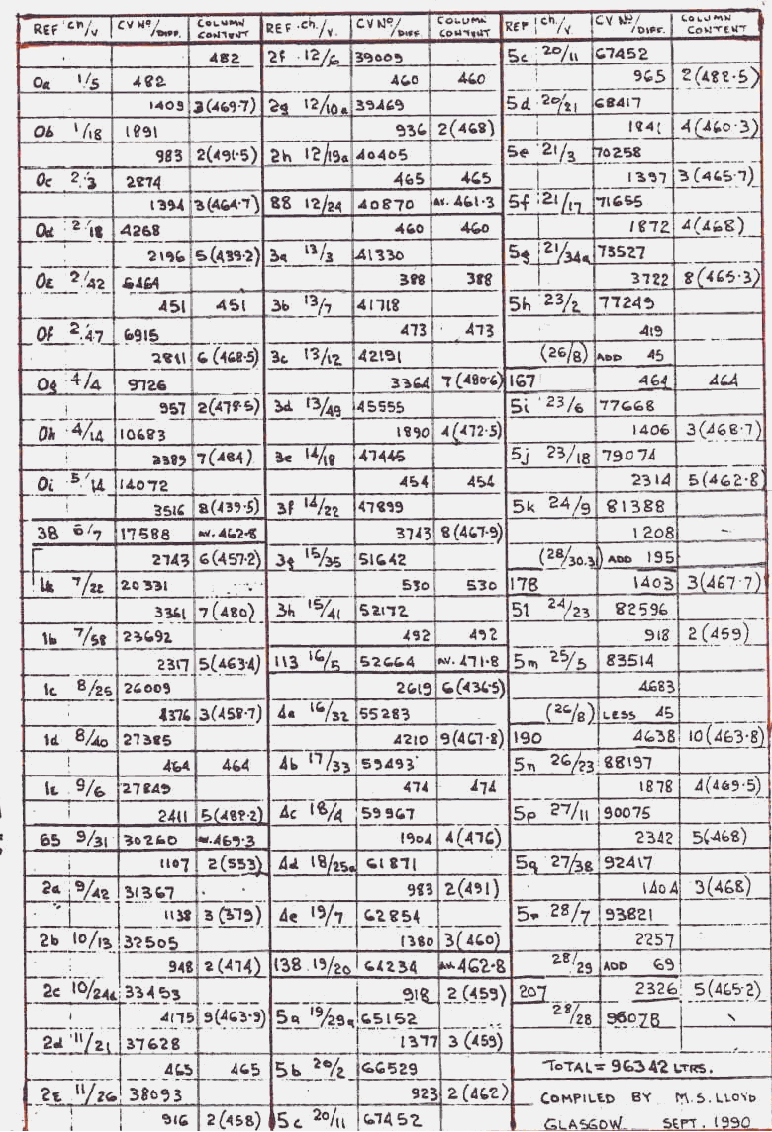 REF ch/v CV Nº/DIFF. COLUMN CONTENT
482
0a 1/5 482
1409 3(469·7)
0b 1/18 1891
983 2(491·5)
0c 2/3 2874
1394 3(464·7)
0d 2/18 4268
2196 5(439·2)
0E 2/42 6464
451 451
0f 2/47 6915
2811 6(468·5)
0g 4/4 9726
957 2(478·5)
0h 4/14 10683
3389 7(484)
0i 5/14 14072
3516 8(439·5)
38 6/7 17588 AV. 462·8
2743 6(457·2)
1a 7/22 20331
3361 7(480)
1b 7/58 23692
2317 5(463·4)
1c 8/25 26009
1376 3(458·7)
1d 8/40 27385
464 464
1E 9/6 27849
2411 5(482·2)
65 9/31 30260 AV. 469·3
1107 2(553)
2a 9/42 31367
1138 3(379)
2b 10/13 32505
948 2(474)
2c 10/24a 33453
4175 9(463·9)
2d 11/21 37628
465 465
2E 11/26 38093
916 2(458)
REF ch./v. CV Nº/DIFF COLUMN CONTENT
2f 12/6 39009
460 460
2g 12/10a 39469
936 2(468)
2h 12/19a 40405
465 465
88 12/24 40870 AV. 461·3
460 460
3a 13/3 41330
388 388
3b 13/7 41718
473 473
3c 13/12 42191
3364 7(480·6)
3d 13/49 45555
1890 4(472·5)
3e 14/18 47445
454 454
3f 14/22 47899
3743 8(467·9)
3g 15/35 51642
530 530
3h 15/41 52172
492 492
113 16/5 52664 AV. 471·8
2619 6(436·5)
4a 16/32 55283
4210 9(467·8)
4b 17/33 59493
474 474
4c 18/4 59967
1904 4(476)
4d 18/25a 61871
983 2(491)
4e 19/7 62854
1380 3(460)
138 19/20 64234 AV. 462·8
918 2(459)
5a 19/29a 65152
1377 3(459)
5b 20/2 66529
923 2(462)
5c 20/11 67452
REF ch/v CV Nº/DIFF COLUMN CONTENT
5c 20/11 67452
965 2(482·5)
5d 20/21 68417
1841 4(460·3)
5e 21/3 70258
1397 3(465·7)
5f 21/17 71655
1872 4(468)
5g 21/34a 73527
3722 8(465·3)
5h 23/2 77249
419
(26/8) ADD 45
167 464 464
5i 23/6 77668
1406 3(468·7)
5j 23/18 79074
2314 5(462·8)
5k 24/9 81388
1208 -
(28/30.31) ADD 195
178 1403 3(467·7)
5l 24/23 82596
918 2(459)
5m 25/5 83514
4683
(26/8) LESS 45
190 4638 10(463·8)
5n 26/23 88197
1878 4(469·5)
5p 27/11 90075
2342 5(468)
5q 27/38 92417
1404 3(468)
5r 28/7 93821
2257
28/29 ADD 69
207 2326 5(465·2)
28/28 96078
TOTAL = 96342 LTRS.
COMPILED BY M.S. LLOYD
GLASGOW SEPT. 1990